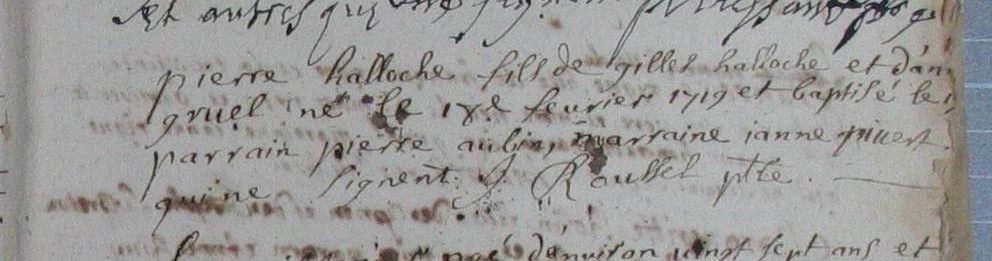 Et autres qui
pierre halloche fils de gilles halloche et d'an
gruel né le 18e fevrier 1719 et baptisé le
parrain pierre aubin, marraine ianne pivert
qui ne signent. J. Roussel ptre.
d'environ vingt sept ans et